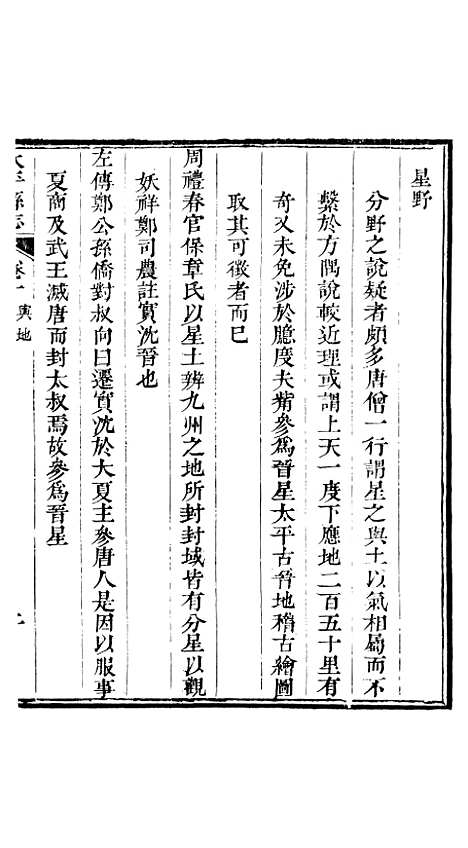 星野
分野之說疑者頗多唐僧一行謂星之與土以氣相屬而不
繫於方隅說較近理或謂上天一度下應地二百五十里有
奇又未免涉於臆度夫觜參爲晉星太平古晉地稽古繪圖
取其可徵者而已
周禮春官保章氏以星土辨九州之地所封封域皆有分星以觀
妖祥鄭司農註實沈晉也
左傳鄭公孫僑對叔向曰遷實沈於大夏主參唐人是因以服事
夏商及武王滅唐而封太叔焉故參爲晉星
太平縣志
卷一
輿地